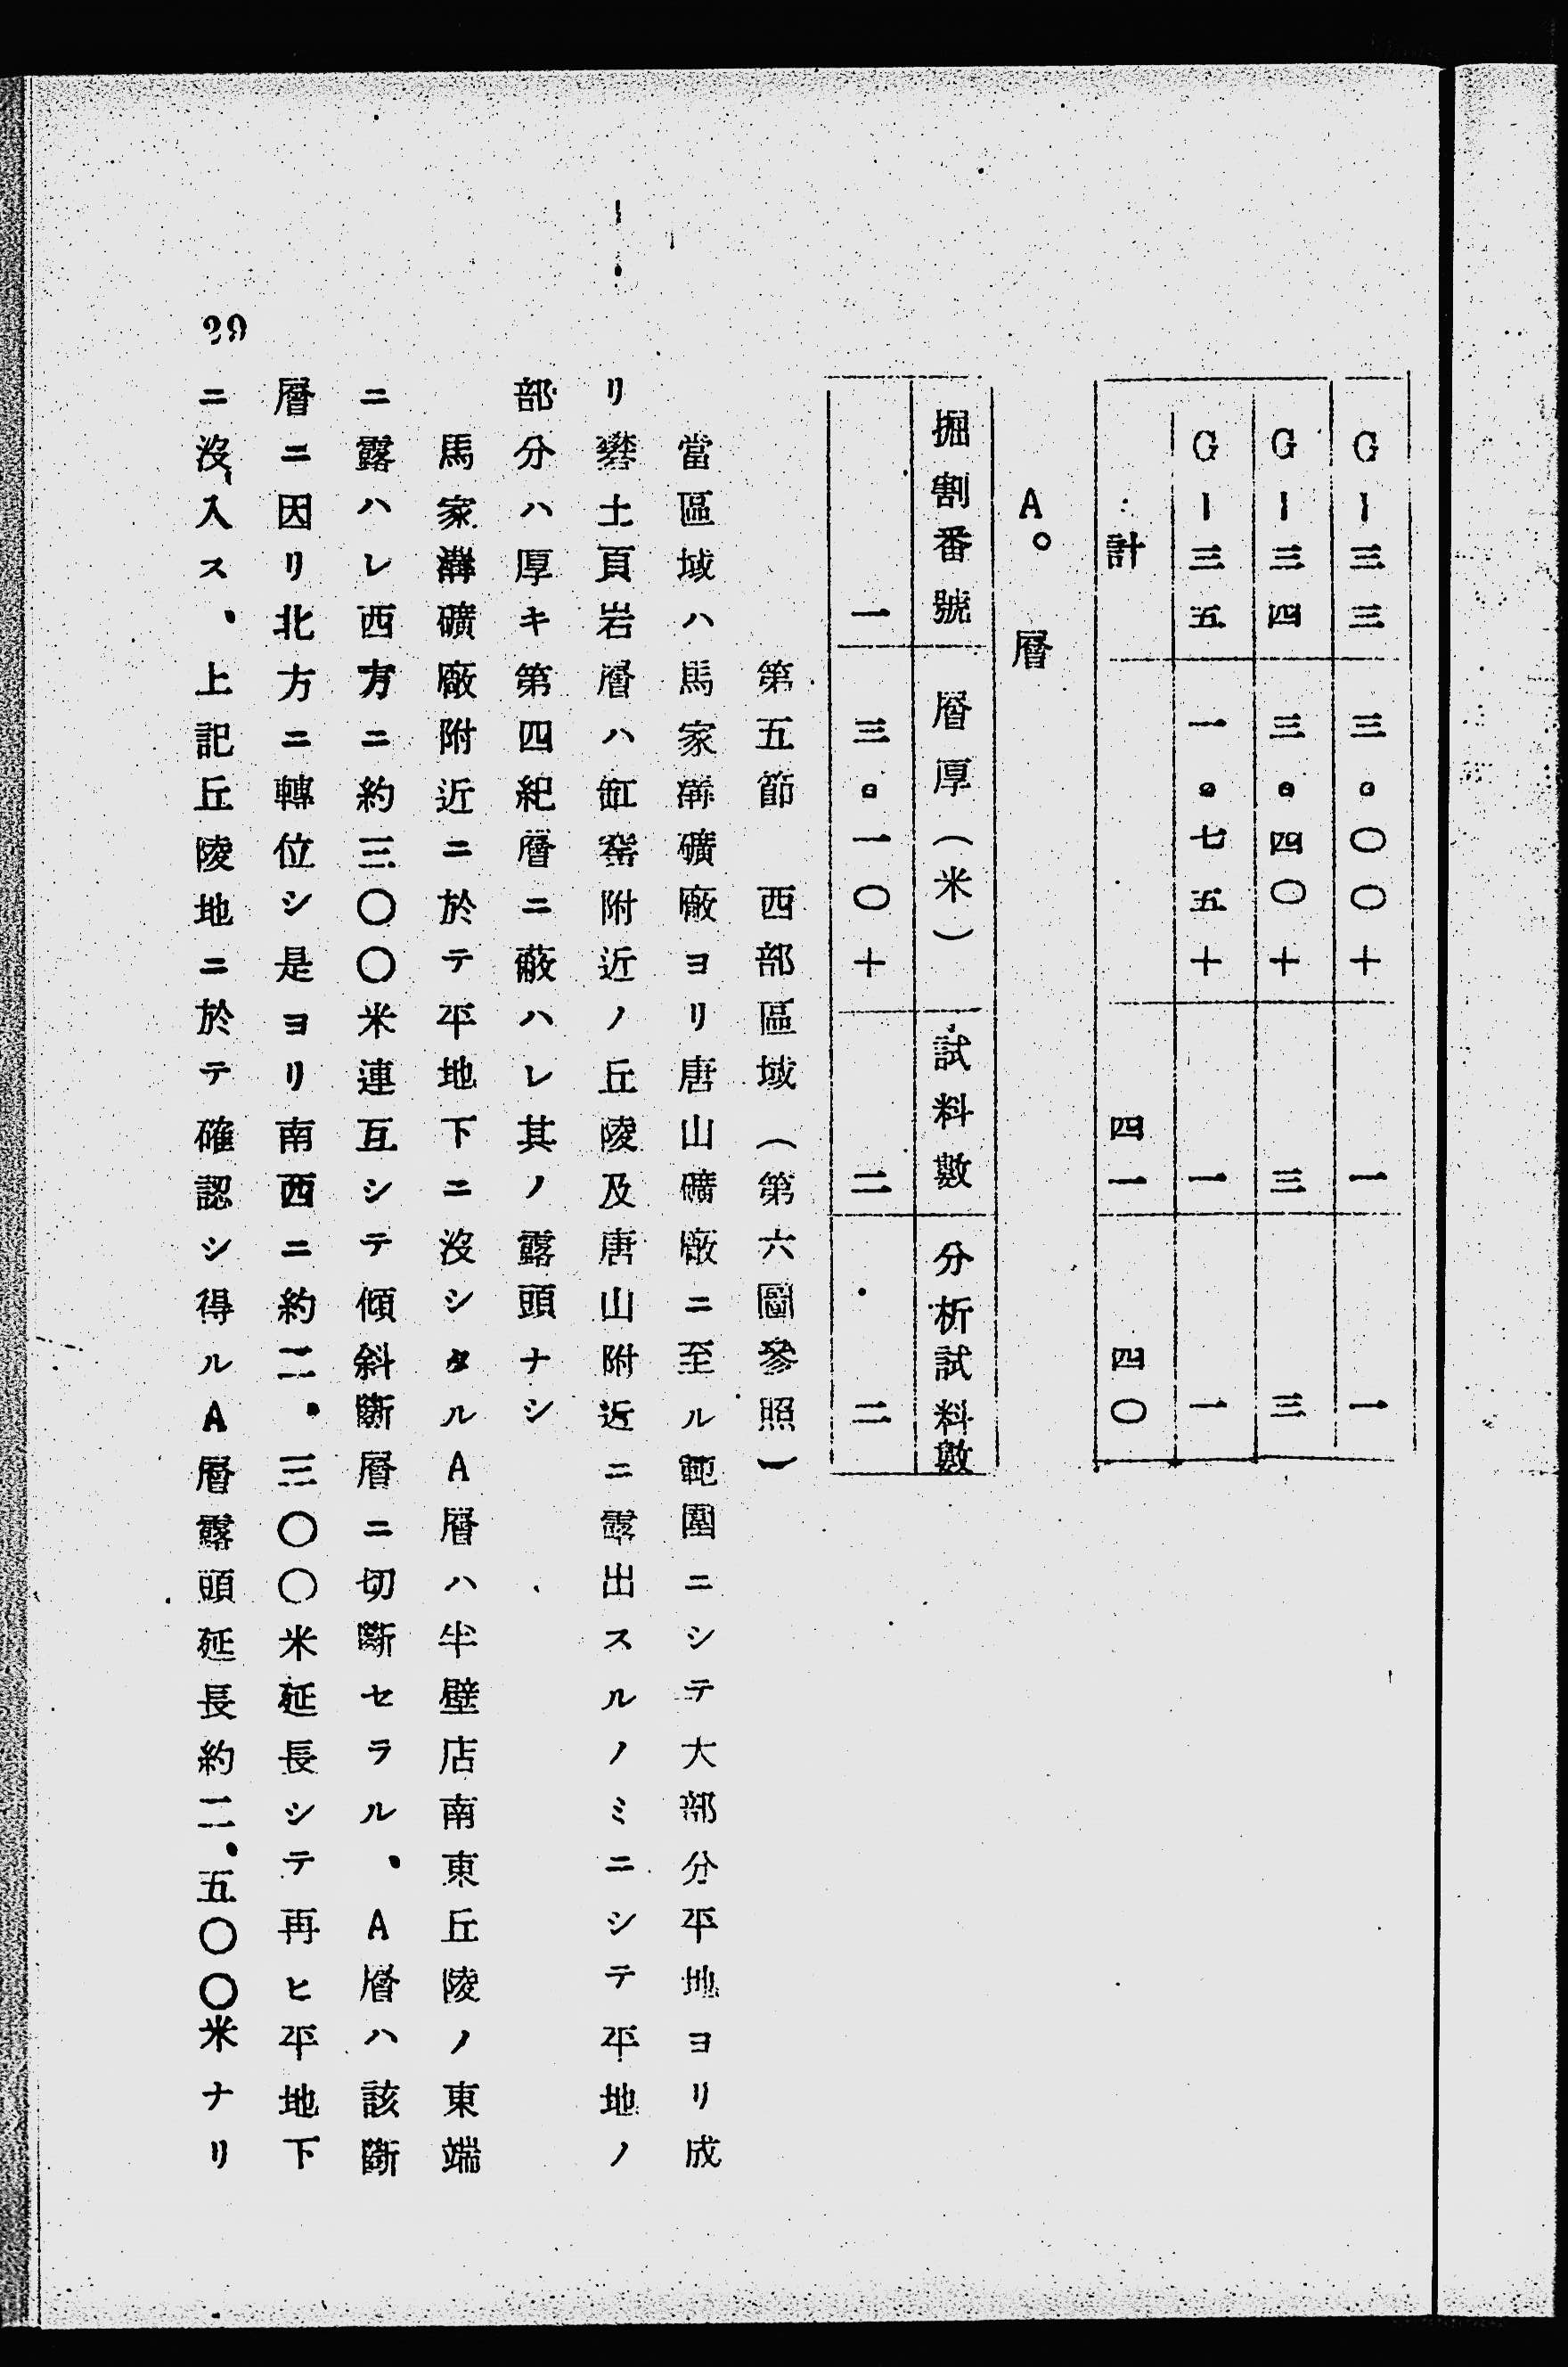 G—三三 三。〇〇十 一 一
G—三四 三。四〇十 三 三
G—三五 一。七五十 一 一
計 四一 四〇
A。層
掘割番號 層厚(米) 試料數 分析試料數
一 三。一〇十 二 二
第五節 西部區域(第六圖參照)
當區域ハ馬家溝礦廠ヨリ唐山礦廠ニ至ル範圍ニシテ大部分平地ヨリ成
リ礬土頁岩層ハ缸窰附近ノ丘陵及唐山附近ニ露出スルノミニシテ平地ノ
部分ハ厚キ第四紀層ニ蔽ハレ其ノ露頭ナシ
馬家溝礦廠附近ニ於テ平地下ニ沒シタルA層ハ半壁店南東丘陵ノ東端
ニ露ハレ西方ニ約三〇〇米連亙シテ傾斜斷層ニ切斷セラル、A層ハ該斷
層ニ因リ北方ニ轉位シ是ヨリ南西ニ約二、三〇〇米延長シテ再ヒ平地下
ニ沒入ス、上記丘陵地ニ於テ確認シ得ルA層露頭延長約二、五〇〇米ナリ
29